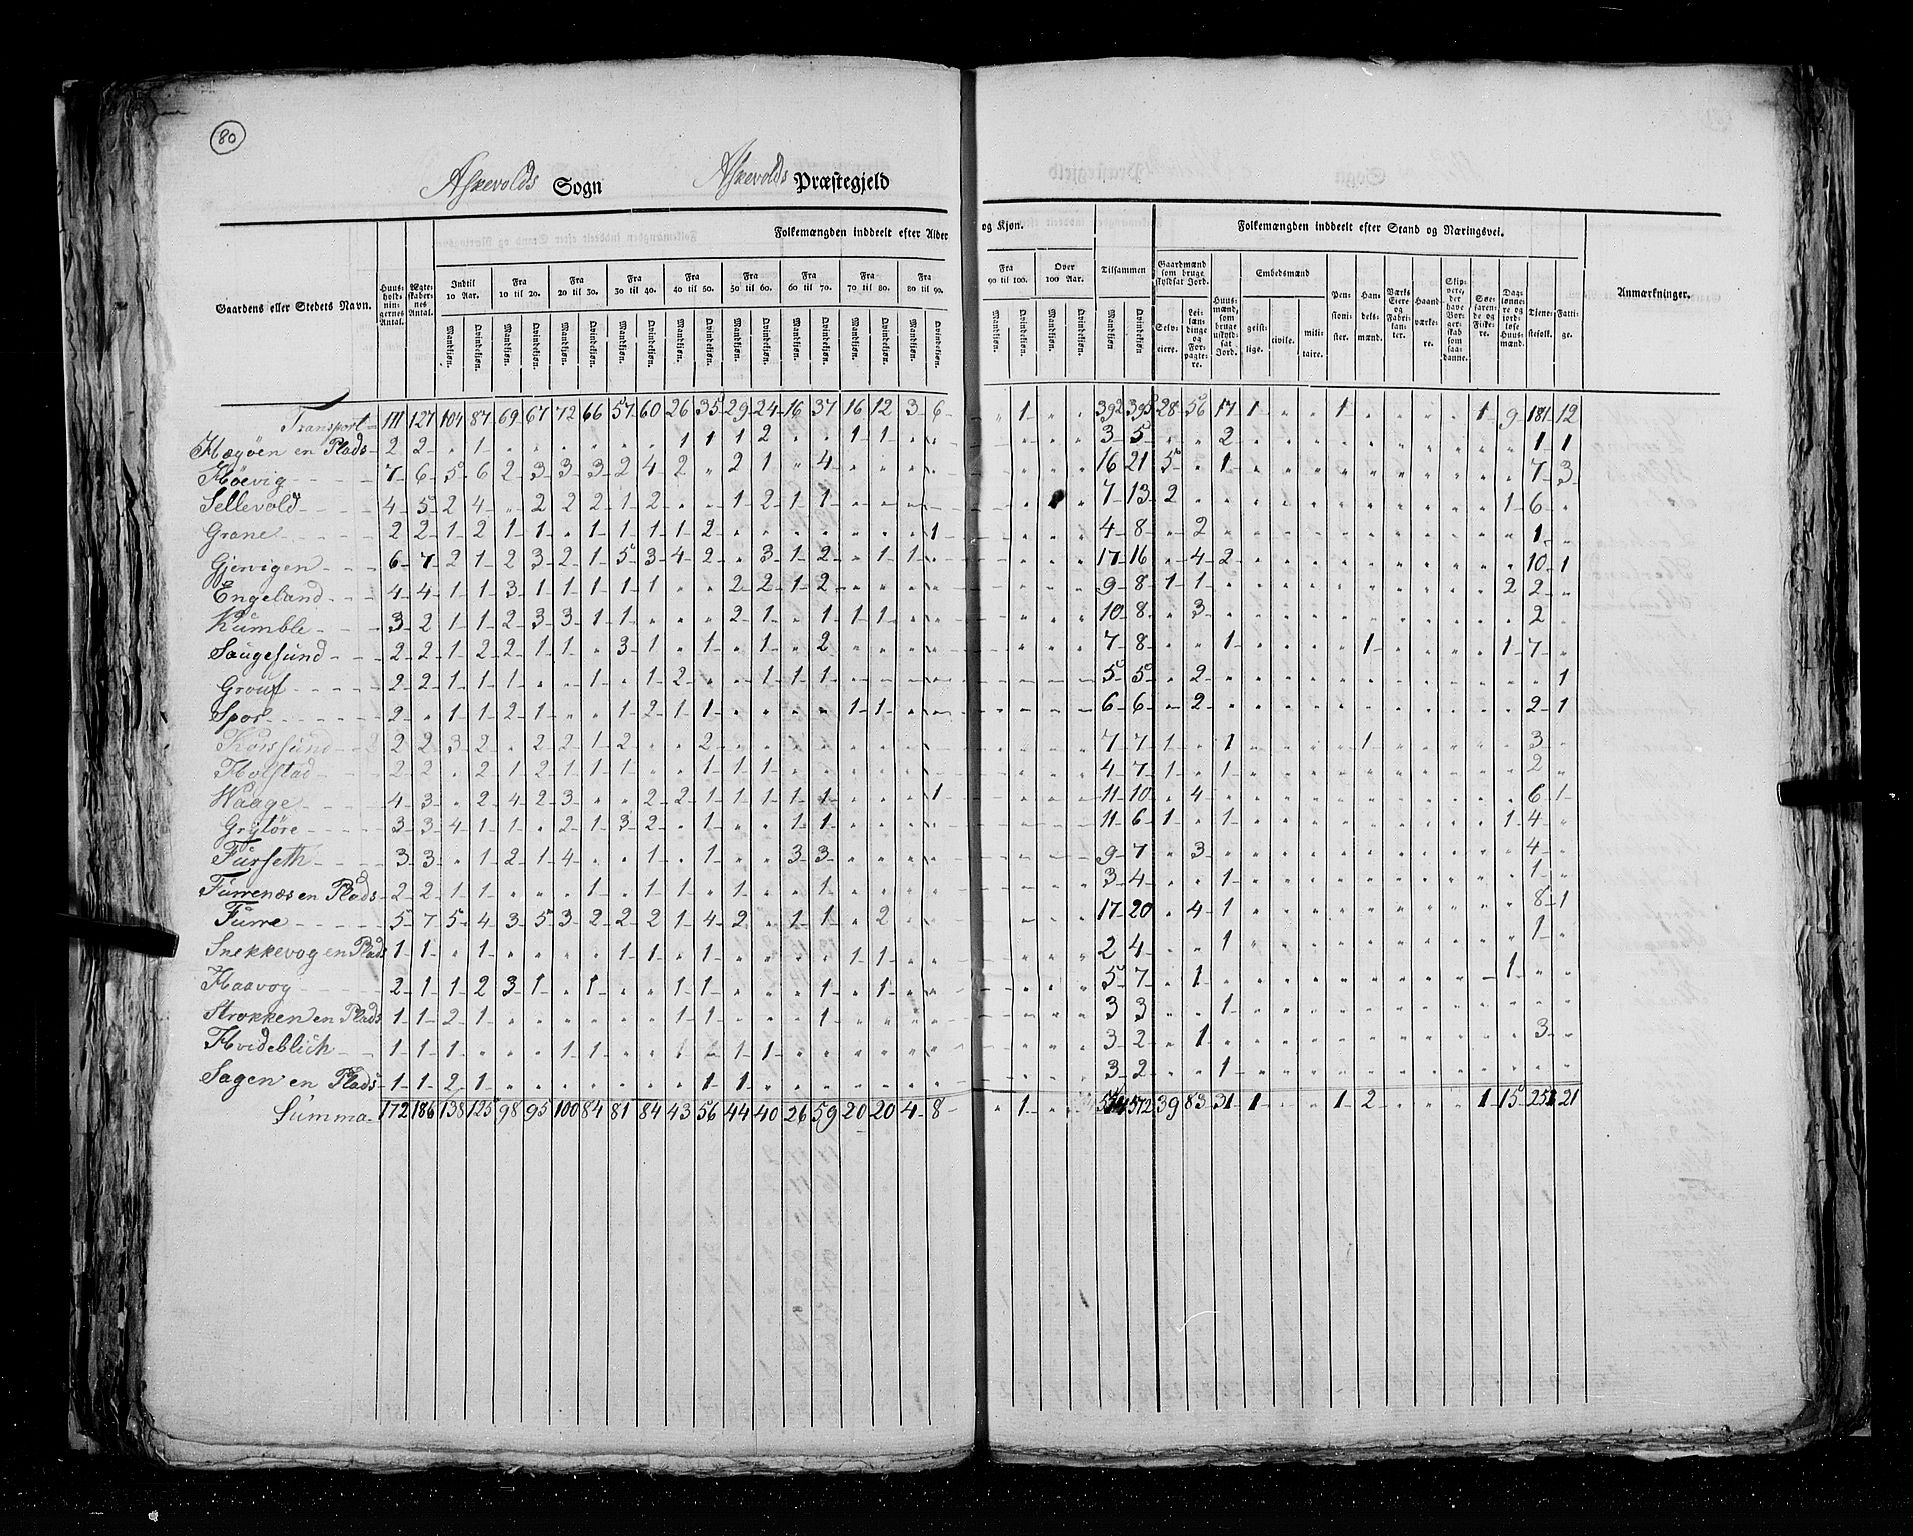 80
Askevolds Sogn Askevolds Præstegjeld
Folkemængden inddeelt efter Alder og Kjøn. Folkemængden inddeelt efter Stand og Næringsvei.
Gaardens eller Stedets Navn. Huusholdningernes Antal. Ægteskabernes Antal. Indtil 10 Aar. Fra 10 til 20. Fra 20 til 30. Fra 30 til 40. Fra 40 til 50. Fra 50 til 60. Fra 60 til 70. Fra 70 til 80. Fra 80 til 90. Fra 90 til 100. Over 100 Aar. Tilsammen Gaardmænd som bruge skyldsat Jord. Huusmænd, som bruge uskyldsat Jord. Embedsmænd Pensionister. Handelsmænd. Værks Eiere og Fabrikanter. Haandværkere. Slipvere, der have Borgerskab som saadanne. Søefarende og Fiskere. Daglønnere og jordløse Huusmænd. Tjenestefolk. Fattige. Anmærkninger.
Mandkjøn. Qvindekjøn. Mandkjøn. Qvindekjøn. Mandkjøn. Qvindekjøn. Mandkjøn. Qvindekjøn. Mandkjøn. Qvindekjøn. Mandkjøn. Qvindekjøn. Mandkjøn. Qvindekjøn. Mandkjøn. Qvindekjøn. Mandkjøn. Qvindekjøn. Mandkjøn. Qvindekjøn. Mandkjøn. Qvindekjøn. Mandkjøn Qvindekjøn. Selveiere. Leilændinge og Forpagtere. geistlige. civile. militaire.
Transport 111 127 104 87 69 67 72 66 57 60 26 35 29 24 16 37 16 12 3 6 " 1 " " 392 395 28 56 17 1 " " 1 " " " " 1 9 181 12
Hægøen en Plads 2 2 " 1 " " " " " " 1 1 1 2 " " 1 1 " " " " " " 3 5 " " 2 " " " " " " " " " " 1 1
Høevig 7 6 5 6 2 3 3 3 2 4 2 " 2 1 " 4 " " " " " " " " 16 21 5 " 1 " " " " " " " " " " 7 3
Sellevold 4 5 2 4 " 2 2 2 1 2 " " 1 2 1 1 " " " " " " " " 7 13 2 " " " " " " " " " " " 1 6 "
Grane 2 2 1 2 1 1 " 1 1 1 1 2 " " " " " " " 1 " " " " 4 8 " 2 " " " " " " " " " " " 1 "
Gjervigen 6 7 2 1 2 3 2 1 5 3 4 2 " 3 1 2 " 1 1 " " " " " 17 16 " 4 2 " " " " " " " " " " 10 1
Engeland 4 4 1 1 3 1 1 1 1 1 " " 2 2 1 2 " " " " " " " " 9 8 1 1 " " " " " " " " " " 2 2 "
Kumble 3 2 1 1 2 3 3 1 1 " " " 2 1 " 1 1 1 " " " " " " 10 8 " 3 " " " " " " " " " " " 2 "
Saugesund 2 2 1 2 2 1 1 " 3 1 " 1 " 1 " 2 " " " " " " " " 7 8 " " 1 " " " " 1 " " " " 1 7 "
Grouf 2 2 1 1 1 " " 1 " 1 2 " " 1 1 1 " " " " " " " " 5 5 " 2 " " " " " " " " " " " " 1
Spor 2 " 1 1 2 1 " " 1 2 1 1 " " " " 1 1 " " " " " " 6 6 " 2 " " " " " " " " " " " 2 1
Korssund 2 2 2 3 2 " 2 2 1 2 " " 2 " " " " " " " " " " " " 7 7 1 " 1 " " " " 1 " " " " " 3 "
Holstad 2 2 " 2 1 2 1 1 1 " " 1 1 1 " " " " " " " " " " 4 7 1 " 1 " " " " " " " " " " 2 "
Waage 4 3 " 2 4 2 3 " " 2 2 1 1 1 1 1 " " " 1 " " " " 11 10 " 4 " " " " " " " " " " " 6 1
Grytøre 3 3 4 1 1 " 2 1 3 2 " 1 " " 1 1 " " " " " " " " 11 6 1 " 1 " " " " " " " " " 1 4 "
Furseth 3 3 " 1 2 1 4 " " 1 " 1 " " 3 3 " " " " " " " " 9 7 " 3 " " " " " " " " " " " 4 "
Furrenæs en Plads 2 2 1 1 " " " 1 " 1 1 " 1 " " 1 " " " " " " " " 3 4 " " 1 " " " " " " " " " " 1 "
Furre 5 7 5 4 3 5 3 2 2 2 1 4 2 " 1 1 " 2 " " " " " " 17 20 " 4 1 " " " " " " " " " " 8 1
Snekkevog en Plads 1 1 " 1 " " " " 1 1 " 1 " " " " 1 1 " " " " " " 2 4 " " 1 " " " " " " " " " " 1 "
Haavog 2 1 1 2 3 1 " 1 " " 1 1 " " " 1 " 1 " " " " " " 5 7 " 1 " " " " " " " " " " 1 " "
Strokken en Plads 1 1 2 1 " " " " " " 1 1 " " " 1 " " " " " " " " 3 3 " " 1 " " " " " " " " " " " "
Hvideblich 1 1 1 " " " 1 1 " " 1 " 1 1 " " " " " " " " " " 3 2 " 1 " " " " " " " " " " " 3 "
Sagen en Plads 1 1 2 1 " " " " " " " 1 1 " " " " " " " " " " " 3 2 " " 1 " " " " " " " " " " " "
Summa 172 186 138 125 98 95 100 84 81 84 43 56 44 40 26 59 20 20 4 8 " 1 " " 554 572 39 83 31 1 " " 1 2 " " " 1 15 251 21